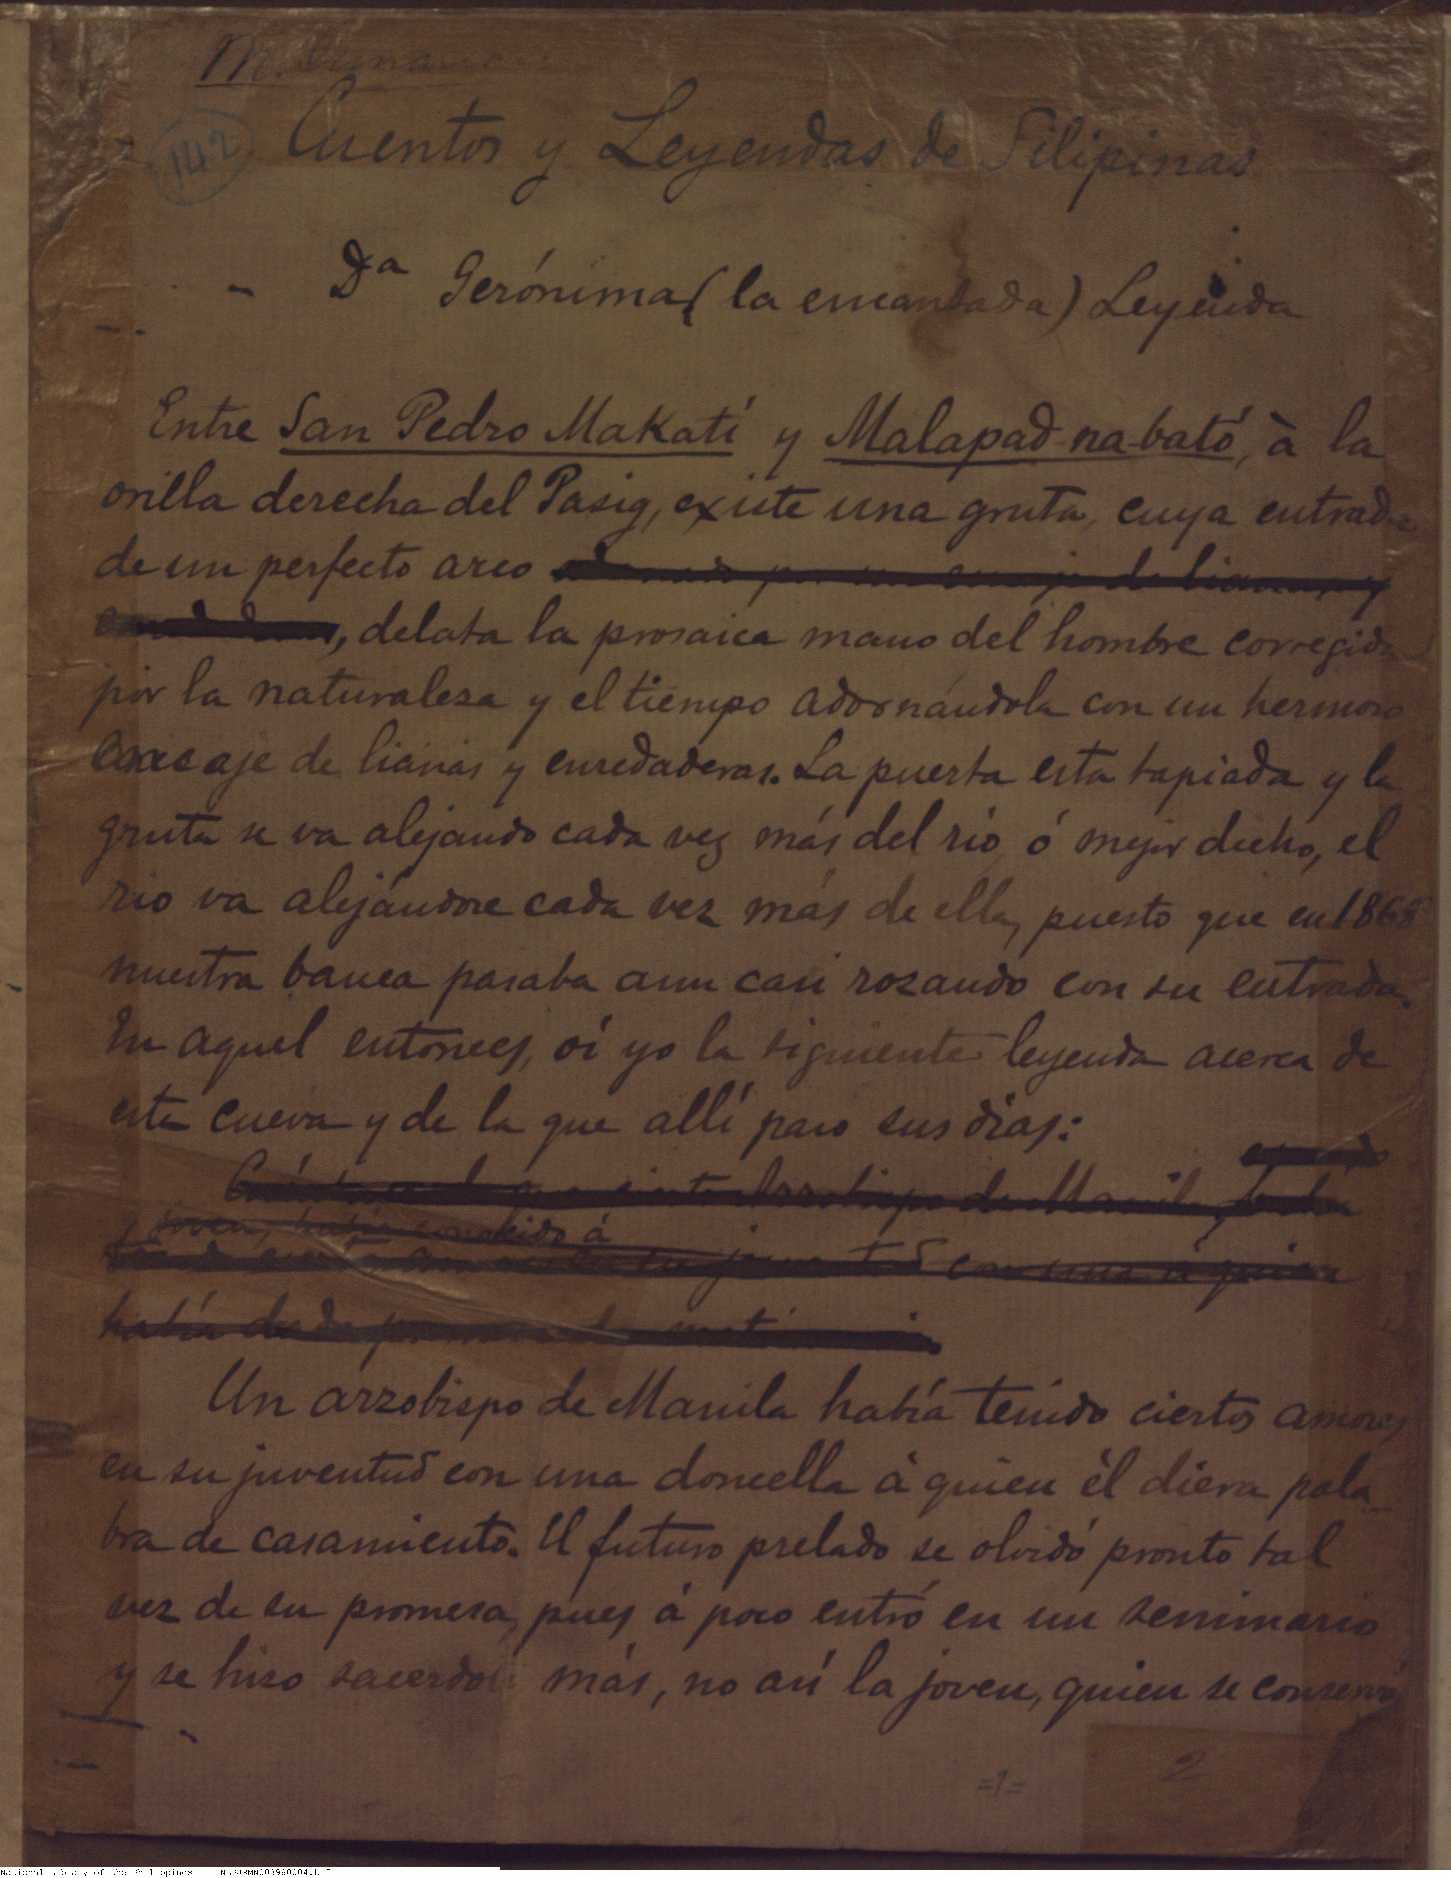 142
Cuentos y Leyendas de Filipinas
- Dª Gerónima (la encantada) Leyenda
Entre San Pedro Makati y Malapad-na-bató, à la
orilla derecha del Pasig, existe una gruta, cuya entrada
de un perfecto arco adornado por un encaje de lianas y
enredaderas, delata la prosaica mano del hombre corregida
por la naturaleza y el tiempo adornándola con un hermoso
encaje de lianas y enredaderas. La puerta esta tapiada y la
gruta se va alejando cada vez más del rio, ó mejor dicho, el
rio va alejándose cada vez más de ella, puesto que en 1868
nuestra banca pasaba aun casi rozando con su entrada.
En aquel entonces, oí yo la siguiente leyenda acerca de
esta cueva y de la que allí paso sus dias:
Arzobispo de Manila,
y joven, había conocido á
su juventud con una á quien
había dado
Un arzobispo de Manila había tenido ciertos amores
en su juventud con una doncella à quien él diera pala-
bra de casamiento. El futuro prelado se olvidó pronto tal
vez de su promesa, pues á poco entró en un seminario
y se hizo sacerdote más, no así la joven, quien se conservó
=1=
2
National Library of the Philippines